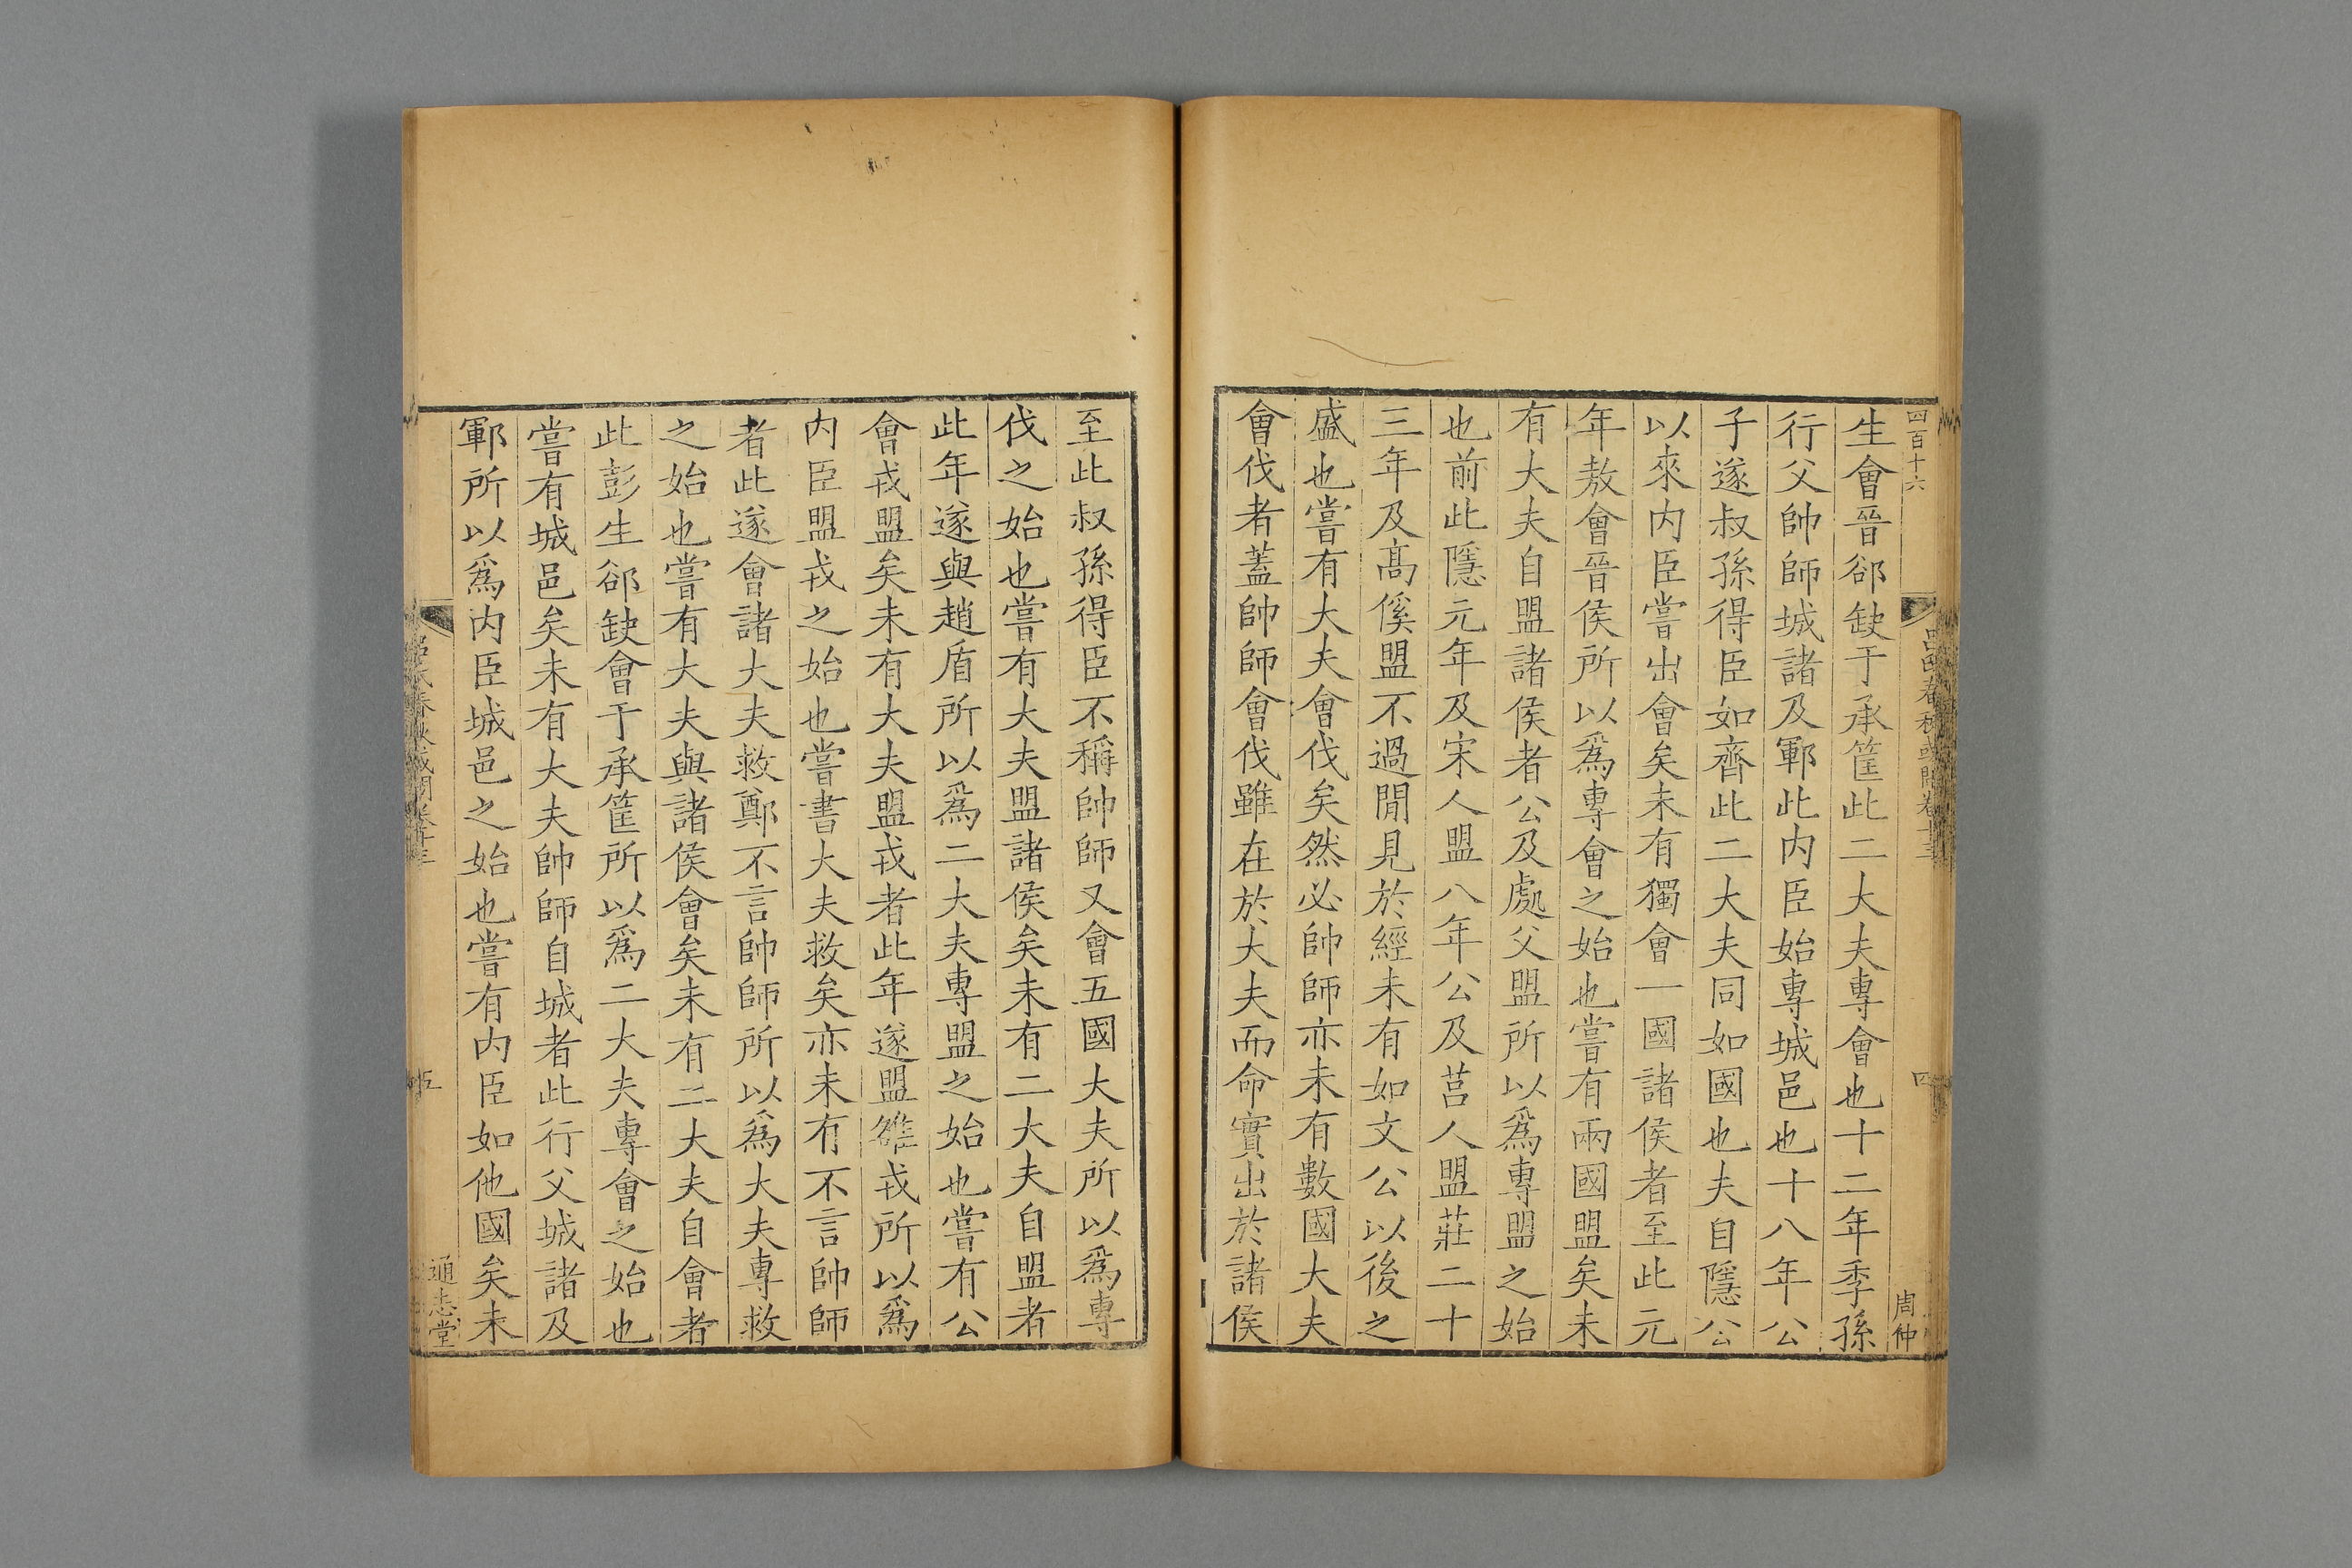 四百十六
周仲
生會晉郤缺于承筐此二大夫專會也十二年季孫
行父帥師城諸及鄆此内臣始專城邑也十八年公
子遂叔孫得臣如齊此二大夫同如國也夫自隱公
以來内臣嘗出會矣未有獨會一國諸侯者至此元
年敖會晉侯所以爲專會之始也嘗有兩國盟矣未
有大夫自盟諸侯者公及處父盟所以爲專盟之始
也前此隱元年及宋人盟八年公及莒人盟莊二十
三年及髙傒盟不過閒見於經未有如文公以後之
盛也嘗有大夫會伐矣然必帥師亦未有數國大夫
會伐者蓋帥師會伐雖在於大夫而命實出於諸侯
至此叔孫得臣不稱帥師又會五國大夫所以爲專
伐之始也嘗有大夫盟諸侯矣未有二大夫自盟者
此年遂與趙盾所以爲二大夫專盟之始也嘗有公
會戎盟矣未有大夫盟戎者此年遂盟雒戎所以爲
内臣盟戎之始也嘗書大夫救矣亦未有不言帥師
者此遂會諸大夫救鄭不言帥師所以爲大夫專救
之始也嘗有大夫與諸侯會矣未有二大夫自會者
此彭生郤缺會于承筐所以爲二大夫專會之始也
嘗有城邑矣未有大夫帥師自城者此行父城諸及
鄆所以爲内臣城邑之始也嘗有内臣如他國矣未
五
通志堂